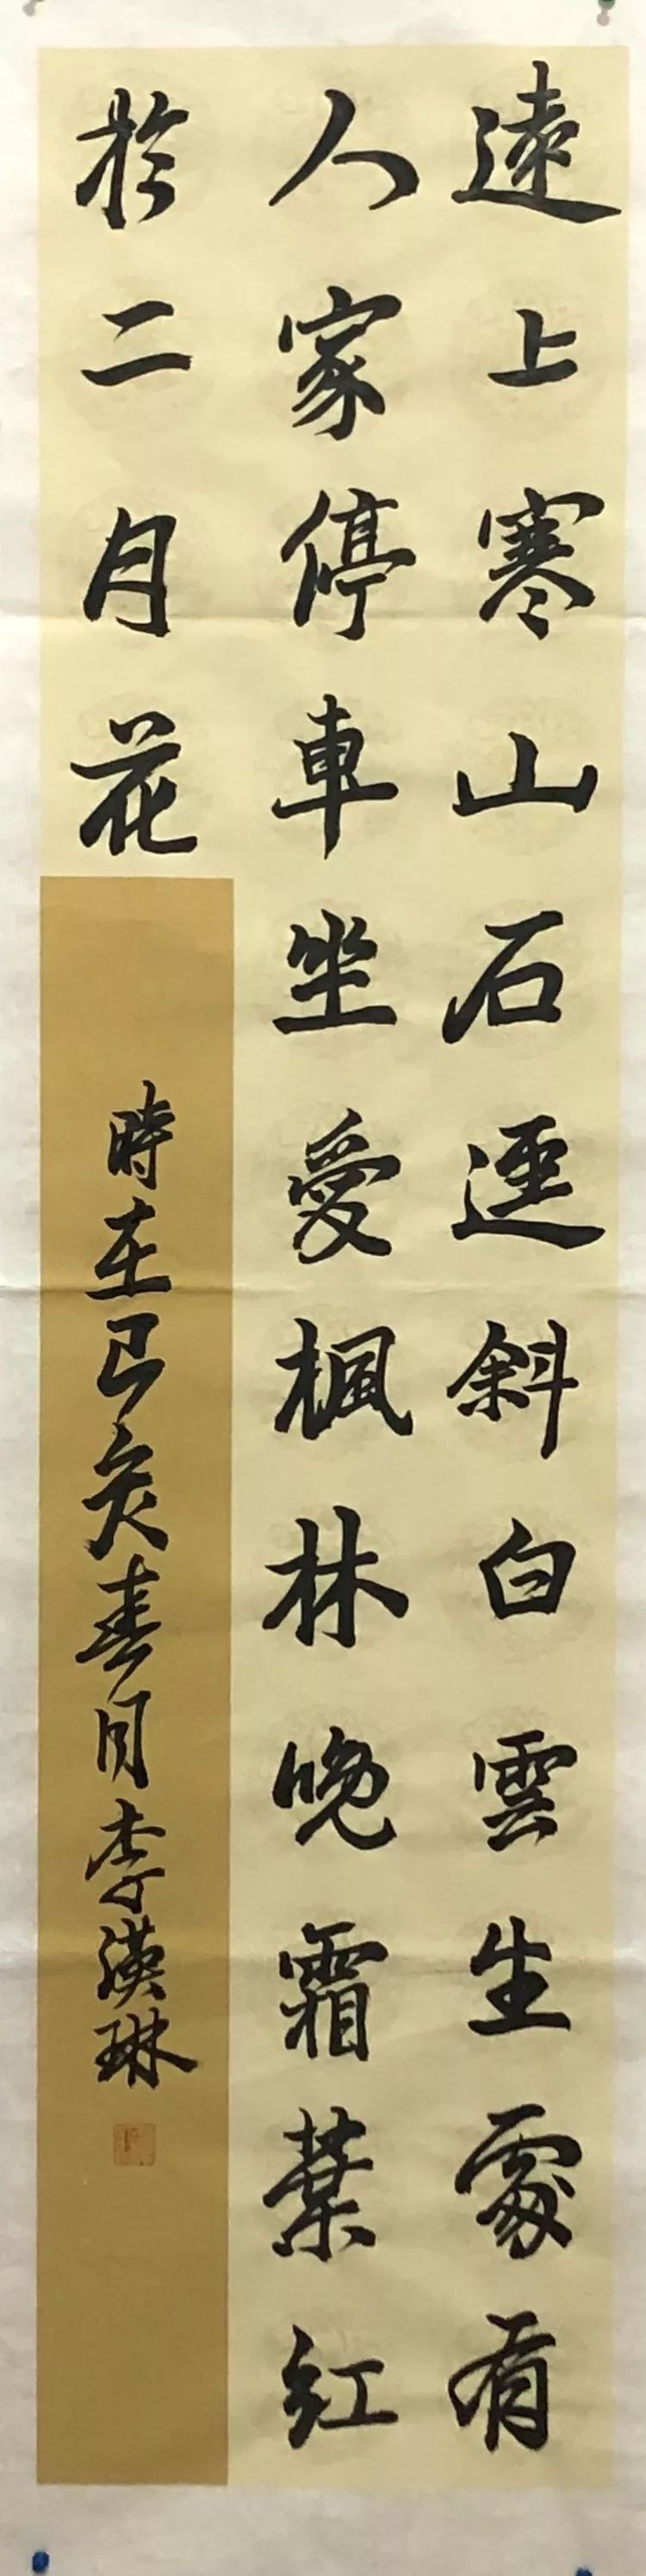 遠上寒山石逕斜白雲生處有
人家停車坐愛楓林晚霜葉紅
於二月花
時在己亥春月李漢琳